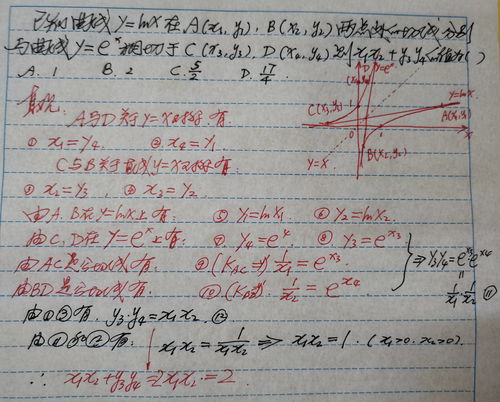 已知曲线 y=lnx 在 A(x₁,y₁), B(x₂,y₂) 两点处的切线分别
与曲线 y=eˣ 相切于 C(x₃,y₃), D(x₄,y₄) 则 x₁x₂+y₃y₄的值为( )
A. 1 B. 2 C. 5/2 D. 17/4
A与D关于y=x对称 有.
① x₁=y₄. ② x₄=y₁
C与B关于直线y=x对称有.
③ x₂=y₃ ④ x₃=y₂
由A.B在y=lnx上有: ⑤ y₁=lnx₁ ⑥ y₂=lnx₂
由C,D在y=eˣ上有: ⑦ y₄=e^x₄ ⑧ y₃=e^x₃
由AC是公切线有. ⑨ (K_AC=) 1/x₁=e^x₃
由BD是公切线有. ⑩ (K_BD=) 1/x₂=e^x₄
⇒ y₃y₄=e^x₃e^x₄
=
1/x₁·1/x₂ ⑪
由①③有. y₃·y₄=x₁x₂ ⑫
由⑪和⑫有: x₁x₂=1/(x₁x₂) ⇒ x₁x₂=1. (x₁>0. x₂>0.)
∴ x₁x₂+y₃y₄=2x₁x₂=2.
(x₄,y₄)
D
y=eˣ
C(x₃,y₃)
y=lnx
A(x₁,y₁)
0
1
x
B(x₂,y₂)
y=x